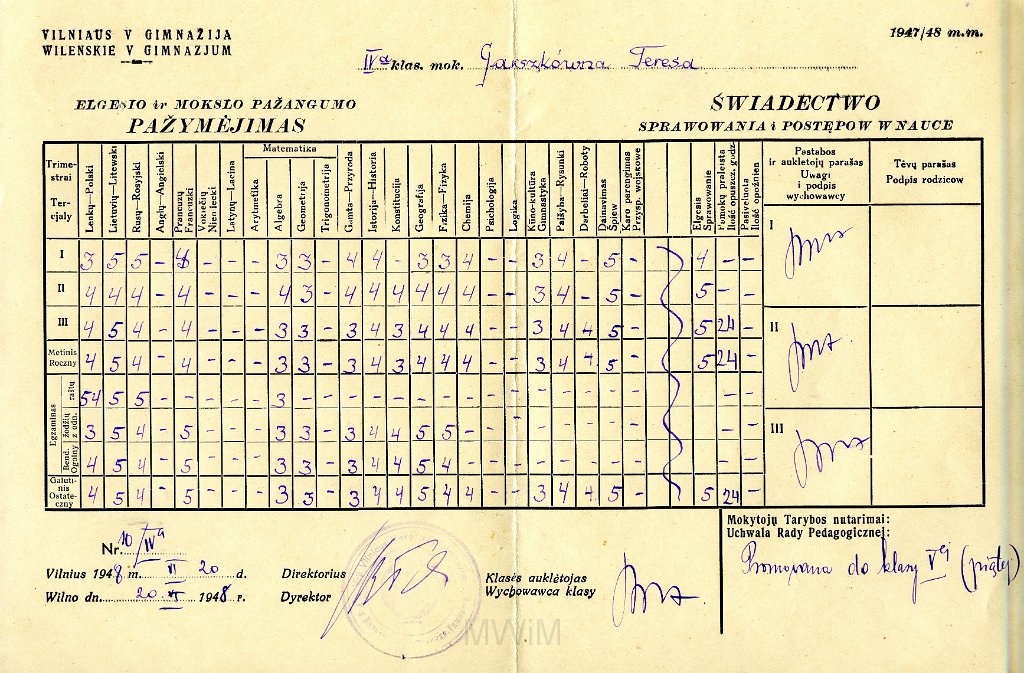 VILNIAUS V GIMNAZIJA
WILENSKIE V GIMNAZJUM
1947/48 m.m.
IVa klas. mok. Garszkówna Teresa
ELGESIO ir MOKSLO PAŽANGUMO
PAŽYMĖJIMAS
ŚWIADECTWO
SPRAWOWANIA i POSTĘPOW W NAUCE
Trime-
strai
Ter-
cjały
Lenkų—Polski
Lietuvių—Litewski
Rusų—Rosyjski
Anglų—Angielski
Prancuzų
Francuski
Vokiečių
Niemiecki
Lotynų—Łacina
Matematika
Arytmetika
Algebra
Geometrija
Trigonometrija
Gamta—Przyroda
Istorija—Historia
Konstitucija
Geografija
Fizika—Fizyka
Chemija
Psichologija
Logika
Kūno-kultūra
Gimnastyka
Paišyba—Rysunki
Darbeliai—Roboty
Dainavimas
Śpiew
Karo parengimas
Przysp. wojskowe
Elgesis
Sprawowanie
Pamokų praleista
Ilość opuszcz. godz.
Pasivėluota
Ilość opóźnien
Pastabos
ir auklėtojų parašas
Uwagi
i podpis
wychowawcy
Tėvų parašas
Podpis rodzicow
I 3 5 5 - 4 - - - 3 3 - 4 4 - 3 3 4 - - 3 4 - 5 - 4 - -
II 4 4 4 - 4 - - - 4 3 - 4 4 4 4 4 4 - - 3 4 - 5 - 5 - -
III 4 5 4 - 4 - - - 3 3 - 3 4 3 4 4 4 - - 3 4 4 5 - 5 24 -
Metinis
Roczny 4 5 4 - 4 - - - 3 3 - 3 4 3 4 4 4 - - 3 4 4 5 - 5 24 -
Egzaminas
raštų 54 5 5 - - - - - 3 - - - - - - - - - - - - - - -
žodžių
z odn. 3 5 4 - 5 - - - 3 3 - 3 4 4 5 5 - - - - - - - -
Bend.
Ogolny 4 5 4 - 5 - - - 3 3 - 3 4 4 5 4 - - - - - - - -
Galuti-
nis
Ostate-
czny 4 5 4 - 5 - - - 3 3 - 3 4 4 5 4 4 - - 3 4 4 5 - 5 24 -
I
II
III
Nr. 10/IVa
Vilnius 1948 m. VI 20 d.
Wilno dn. 20 VI 1948 r.
Direktorius
Dyrektor
Klasės auklėtojas
Wychowawca klasy
Mokytojų Tarybos nutarimai:
Uchwala Rady Pedagogicznej:
Promowana do klasy Vej (piątej)
MWiM